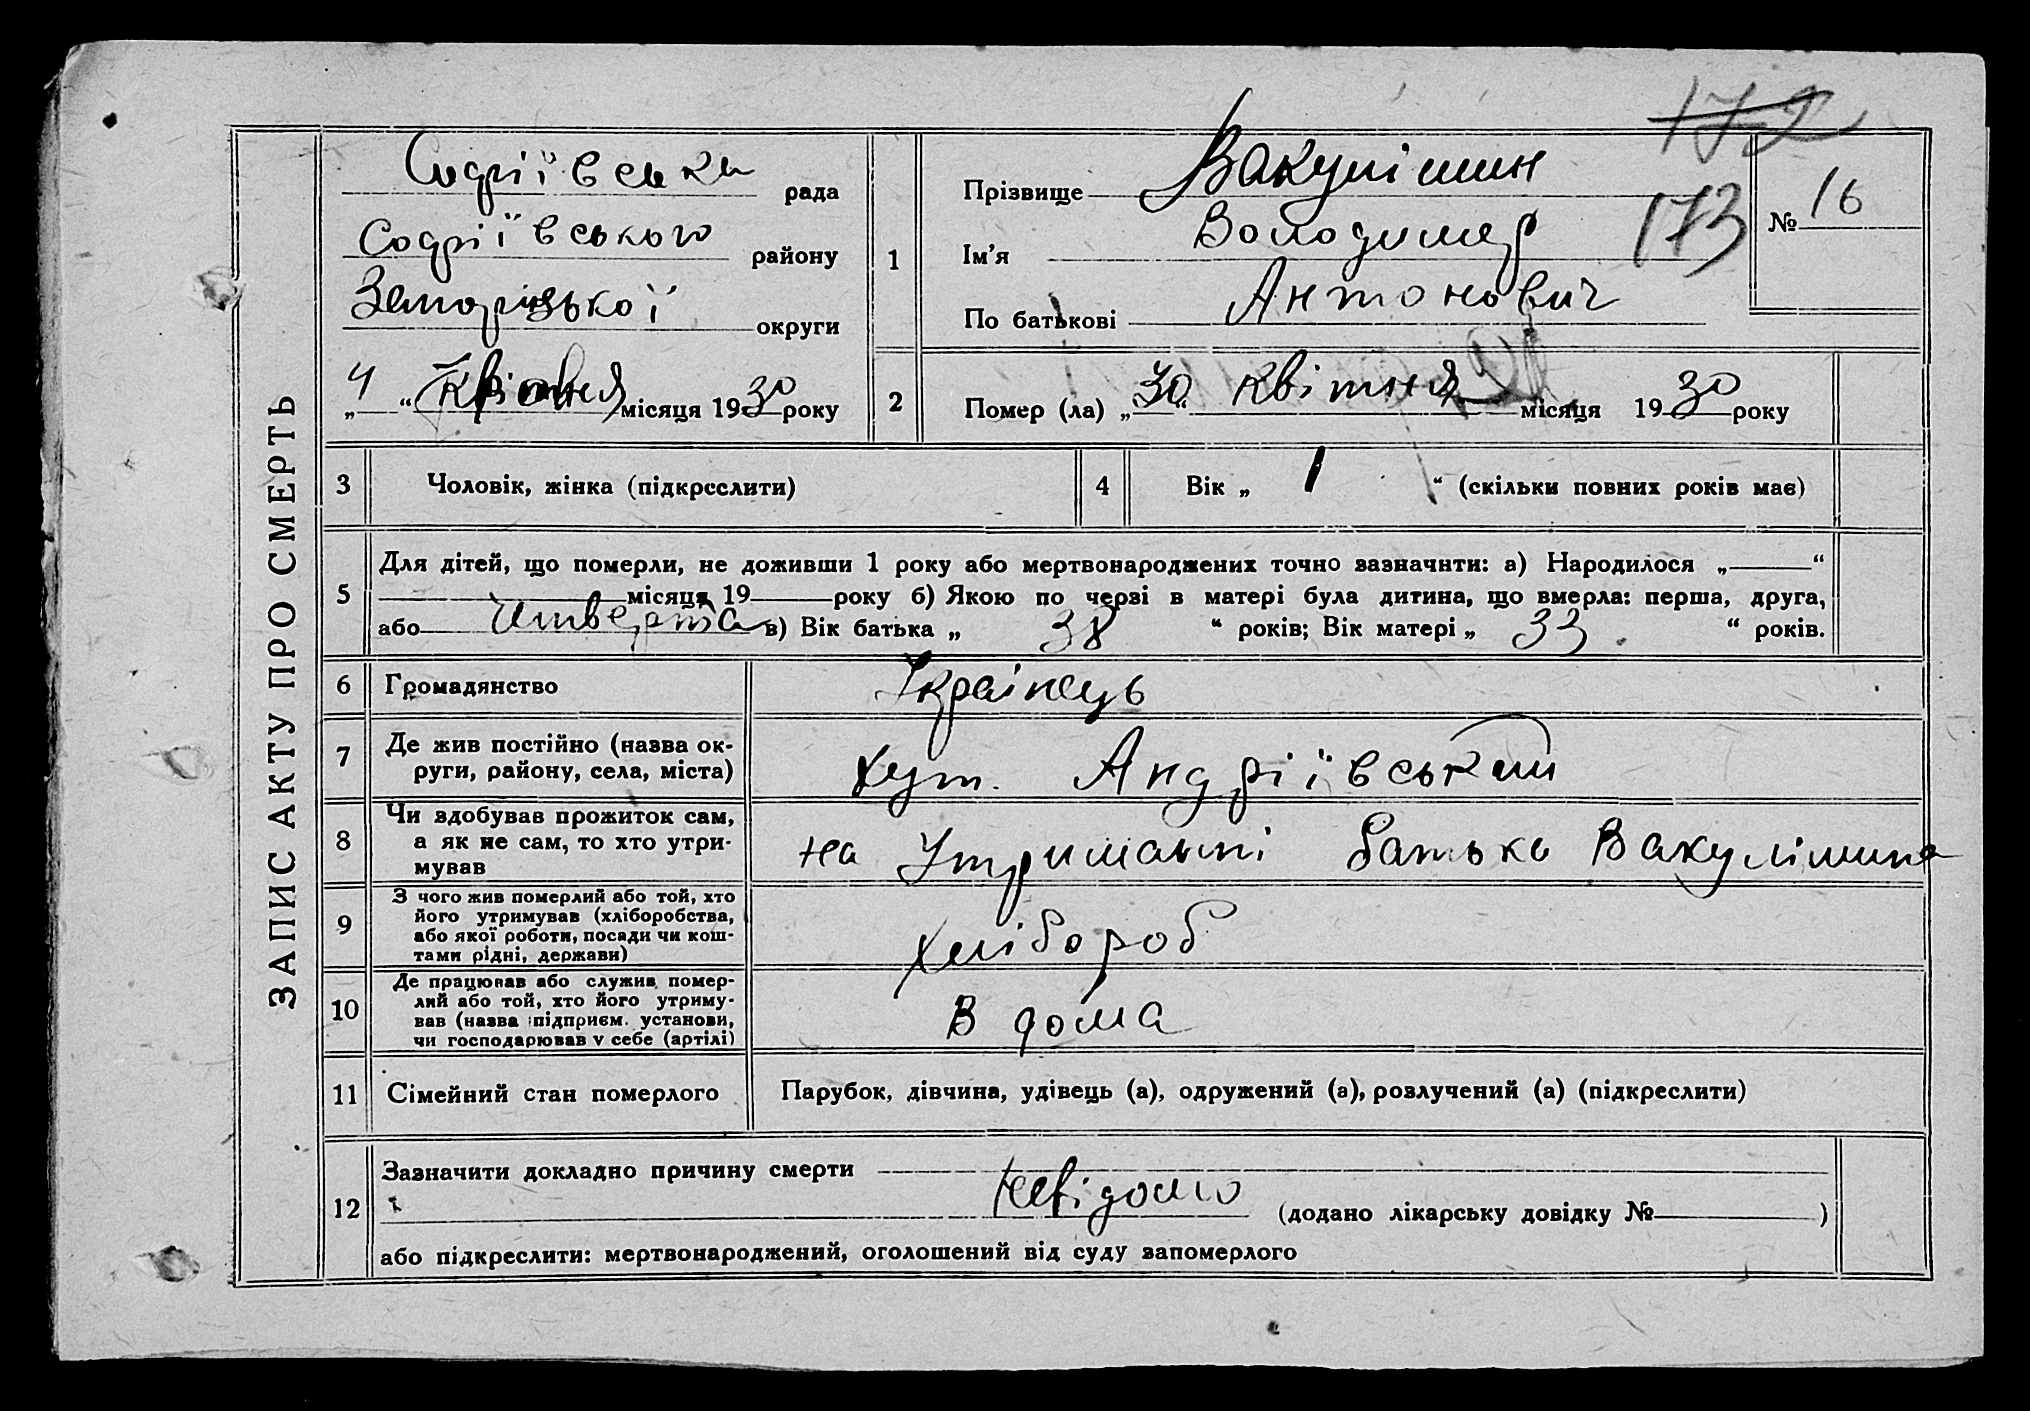 172
173
ЗАПИС АКТУ ПРО СМЕРТЬ
Софіївська рада
Софіївського району
Запорізької округи
„4“ квітня місяця 1930 року
1
Прізвище Вакулішин
Ім'я Володимер
По батькові Антонович
№ 16
2
Помер (ла) „30“ квітня місяця 1930 року
3
Чоловік, жінка (підкреслити)
4
Вік „1“ (скільки повних років має)
5
Для дітей, що померли, не доживши 1 року або мертвонароджених точно зазначити: а) Народилося „ “
місяця 19 року б) Якою по черзі в матері була дитина, що вмерла: перша, друга,
або четверта в) Вік батька „38“ років; Вік матері „33“ років.
6
Громадянство
Українець
7
Де жив постійно (назва ок-
руги, району, села, міста)
хут. Андріївський
8
Чи здобував прожиток сам,
а як не сам, то хто утри-
мував
на утриманні батька Вакулішина
9
З чого жив померлий або той, хто
його утримував (хліборобства,
або якої роботи, посади чи кош-
тами рідні, держави)
хлібороб
10
Де працював або служив помер-
лий або той, хто його утриму-
вав (назва підприєм. установи,
чи господарював у себе (артілі)
В дома
11
Сімейний стан померлого
Парубок, дівчина, удівець (а), одружений (а), розлучений (а) (підкреслити)
12
Зазначити докладно причину смерти
невідомо (додано лікарську довідку № )
або підкреслити: мертвонароджений, оголошений від суду запомерлого